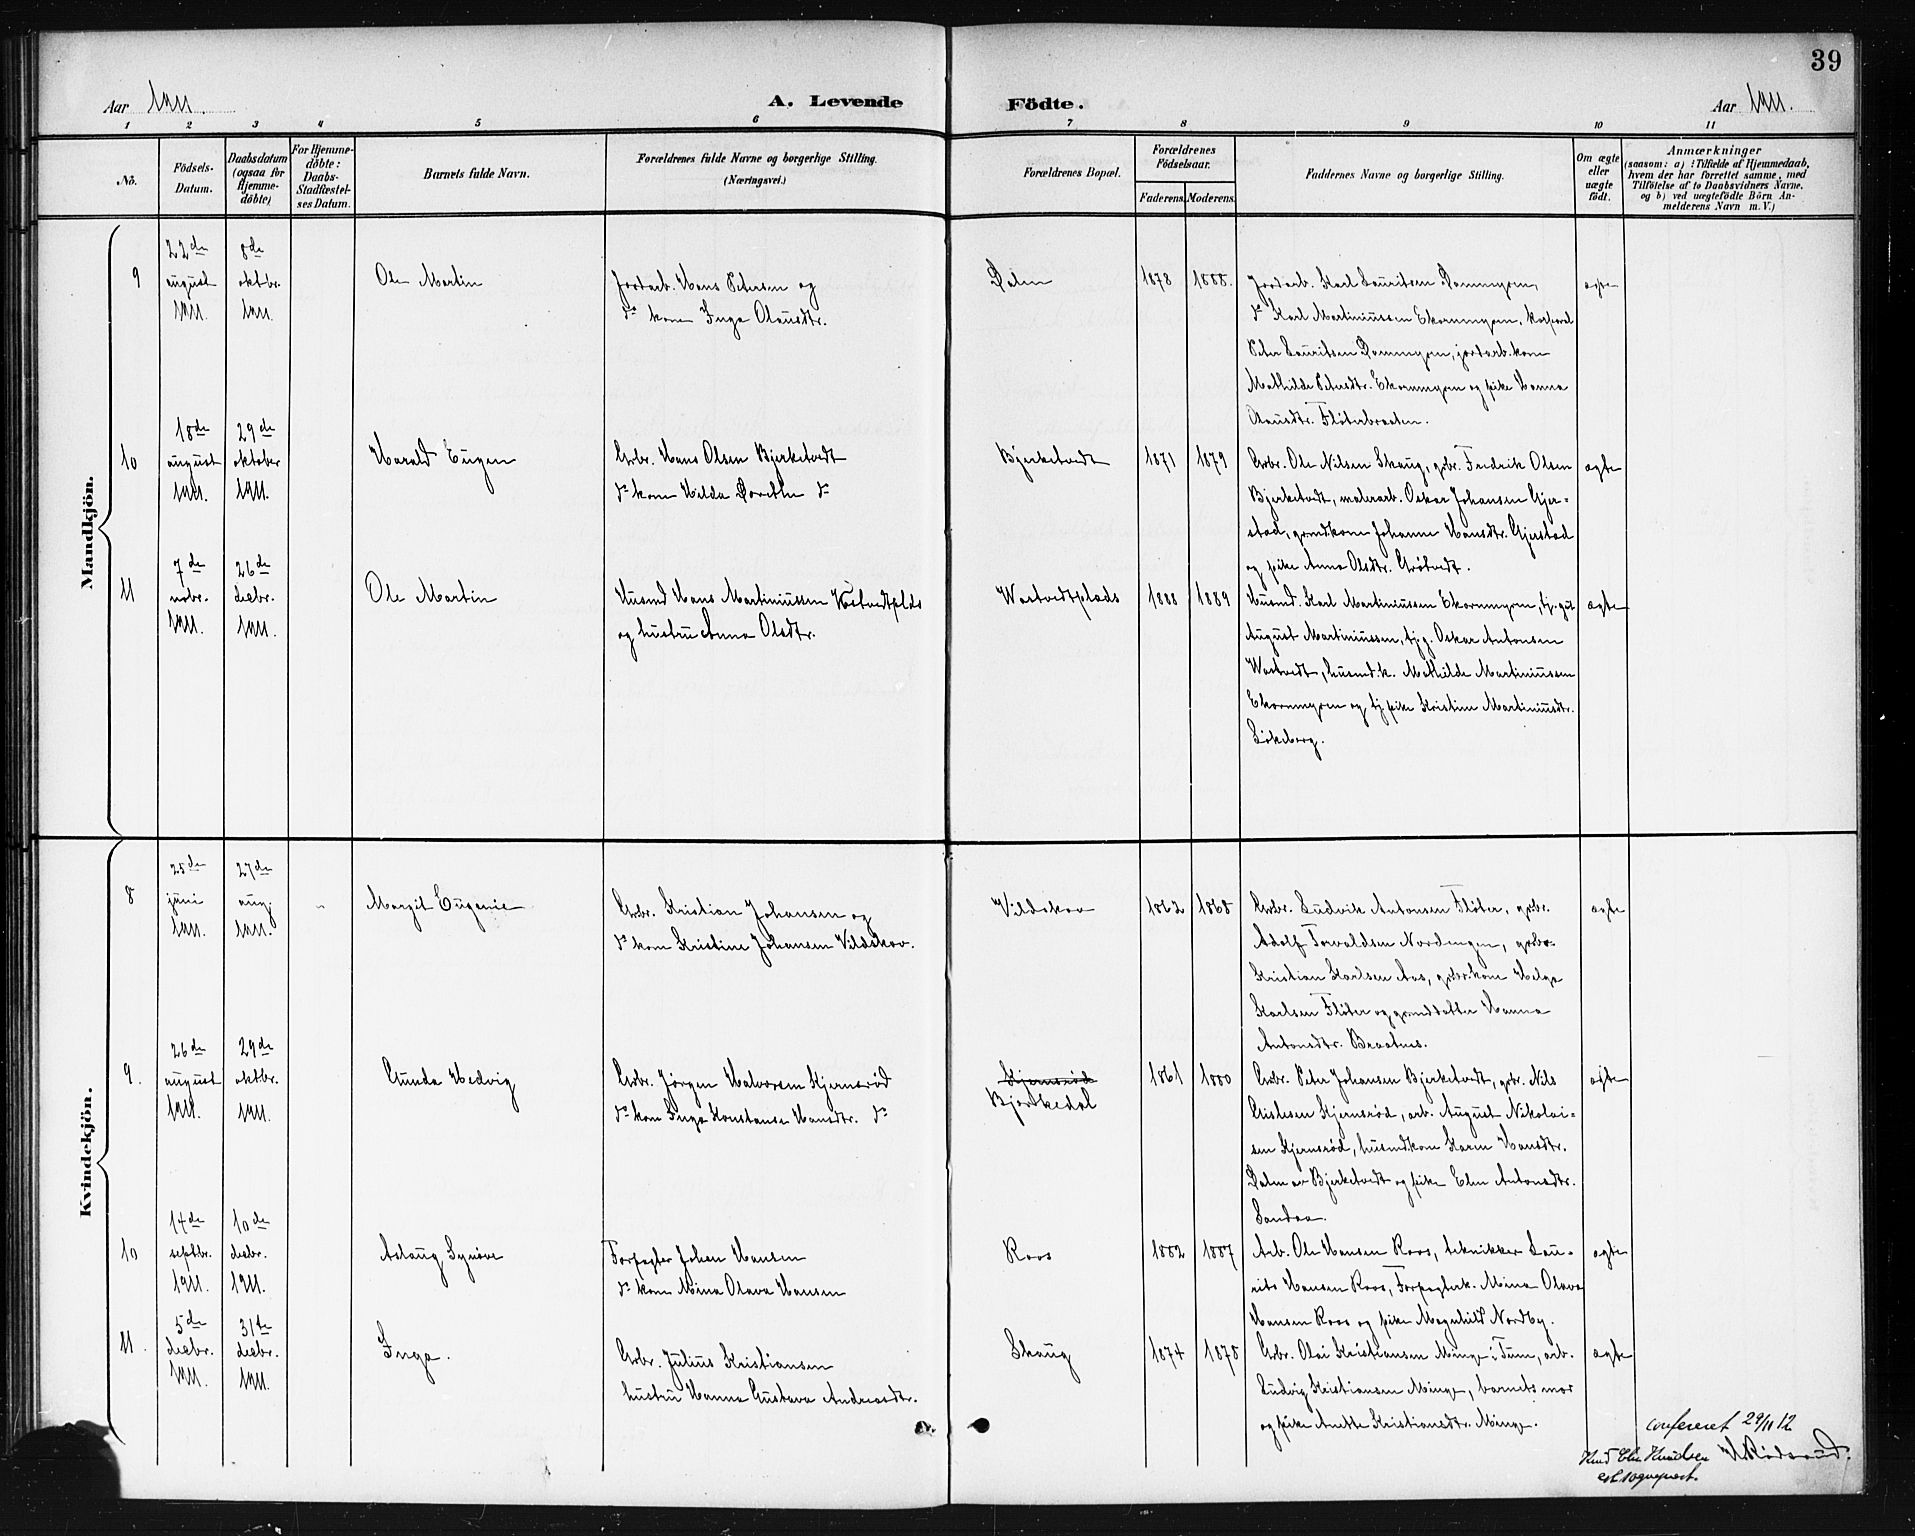 39
Aar 1911.
A. Levende
Födte.
Aar 1911.
1 2 3 4 5 6 7 8 9 10 11
No.
Födsels-
Datum.
Daabsdatum
(ogsaa for
Hjemme-
döbte)
For Hjemme-
döbte:
Daabs-
Stadfæstel-
ses Datum.
Barnets fulde Navn.
Forældrenes fulde Navne og borgerlige Stilling.
(Næringsvei.)
Forældrenes Bopæl.
Forældrenes
Födselsaar.
Faderens. Moderens.
Faddernes Navne og borgerlige Stilling.
Om ægte
eller
uægte
født.
Anmærkninger
(saasom: a) i Tilfælde af Hjemmedaab,
hvem der har forrettet samme, med
Tilføielse af to Daabsvidners Navne,
og b) ved uægtefödte Börn An-
melderens Navn m. V.)
Mandkjön.
9
22de
august
1911.
8de
oktbr.
1911.
Ole Martin
Jordarb. Hans Petersen og
do kone Inga Olausdtr.
Dalen
1878
1888.
Jordarb. Karl Lauritsen Dammyren,
do Karl Martiniussen Ekornmyren, korporal
Peter Lauritsen Dammyren, jordarb.kone
Mathilde Petersdtr. Ekornmyren og pike Hanna
Olausdtr. Fløterbraaten.
ægte
10
18de
august
1911.
29de
oktober
1911.
Harald Eugen
Grbr. Hans Olsen Bjerketvedt
do kone Hilda Dorthea do
Bjerketvedt
1871
1879
Grbr. Ole Nilsen Skaug, grbr. Fredrik Olsen
Bjerketvedt, malerarb. Oskar Johansen Gjer-
stad, grmdkone Johanne Hansdtr. Gjerstad
og pike Anna Olsdtr. Grøtvedt.
ægte
11
7de
novbr.
1911.
26de
decbr.
1911.
Ole Martin
Husmd Hans Martiniussen Wastvedtplds
og hustru Anna Olsdtr.
Wastvedtplads
1888
1889
Husmd. Karl Martiniussen Ekornmyren, tj.gut
August Martiniussen, tj.g. Oskar Antonsen
Wastvedt, husmd.k. Mathilde Martiniussen
Ekornmyren og tj.pike Kristine Martiniusdtr.
Løkeberg.
ægte
Kvindekjön.
8
25de
juni
1911.
27de
aug.
1911.
Margit Eugenie
Grbr. Kristian Johansen og
do kone Kristine Johansen Vildskov.
Vildskov
1862
1868
Grbr. Ludvik Antonsen Fløter, grbr.
Adolf Torvaldsen Nordengen, grbr.
Kristian Karlsen Aas, grbr.kone Helga
Karlsen Fløter og grmddatter Hanna
Antonsdtr. Braatnes.
ægte
9.
26de
august
1911.
29de
oktbr.
1911.
Gunda Hedvig
Grbr. Jørgen Halvorsen Kjernsrød
do kone Inga Konstanse Hansdtr. do
Kjernsrød
Bjerkedal
1861
1880
Grbr. Peter Johansen Bjerketvedt, grbr. Nils
Kjernsrød, arb. August Nikolai-
sen Kjernsrød, husmdkone Karen Hansdtr.
Dalen av Bjerketvedt og pike Elen Antonsdtr.
Sandaa.
ægte
10
14de
septbr.
1911.
10de
decbr.
1911.
Aslaug Synøve
Forpagter Johan Hansen
do kone Mina Olava Hansen
Roos
1882
1887
Arb. Ole Hansen Roos, tekniker Lau-
rits Hansen Roos, Forpagterk. Mina Olava
Hansen Roos og pike Magnhild Nordby.
ægte
11.
5de
decbr.
1911.
31te
decbr.
1911.
Inga.
Grbr. Julius Kristiansen
hustru Hanna Gustava Andreasdtr.
Skaug
1874
1878
Grbr. Olai Kristiansen Minge i Tune, arb.
Ludvig Kristiansen Minge, barnets mor
og pike Anette Kristiansdtr. Minge.
ægte
confereret 29/11 12
Knudsen